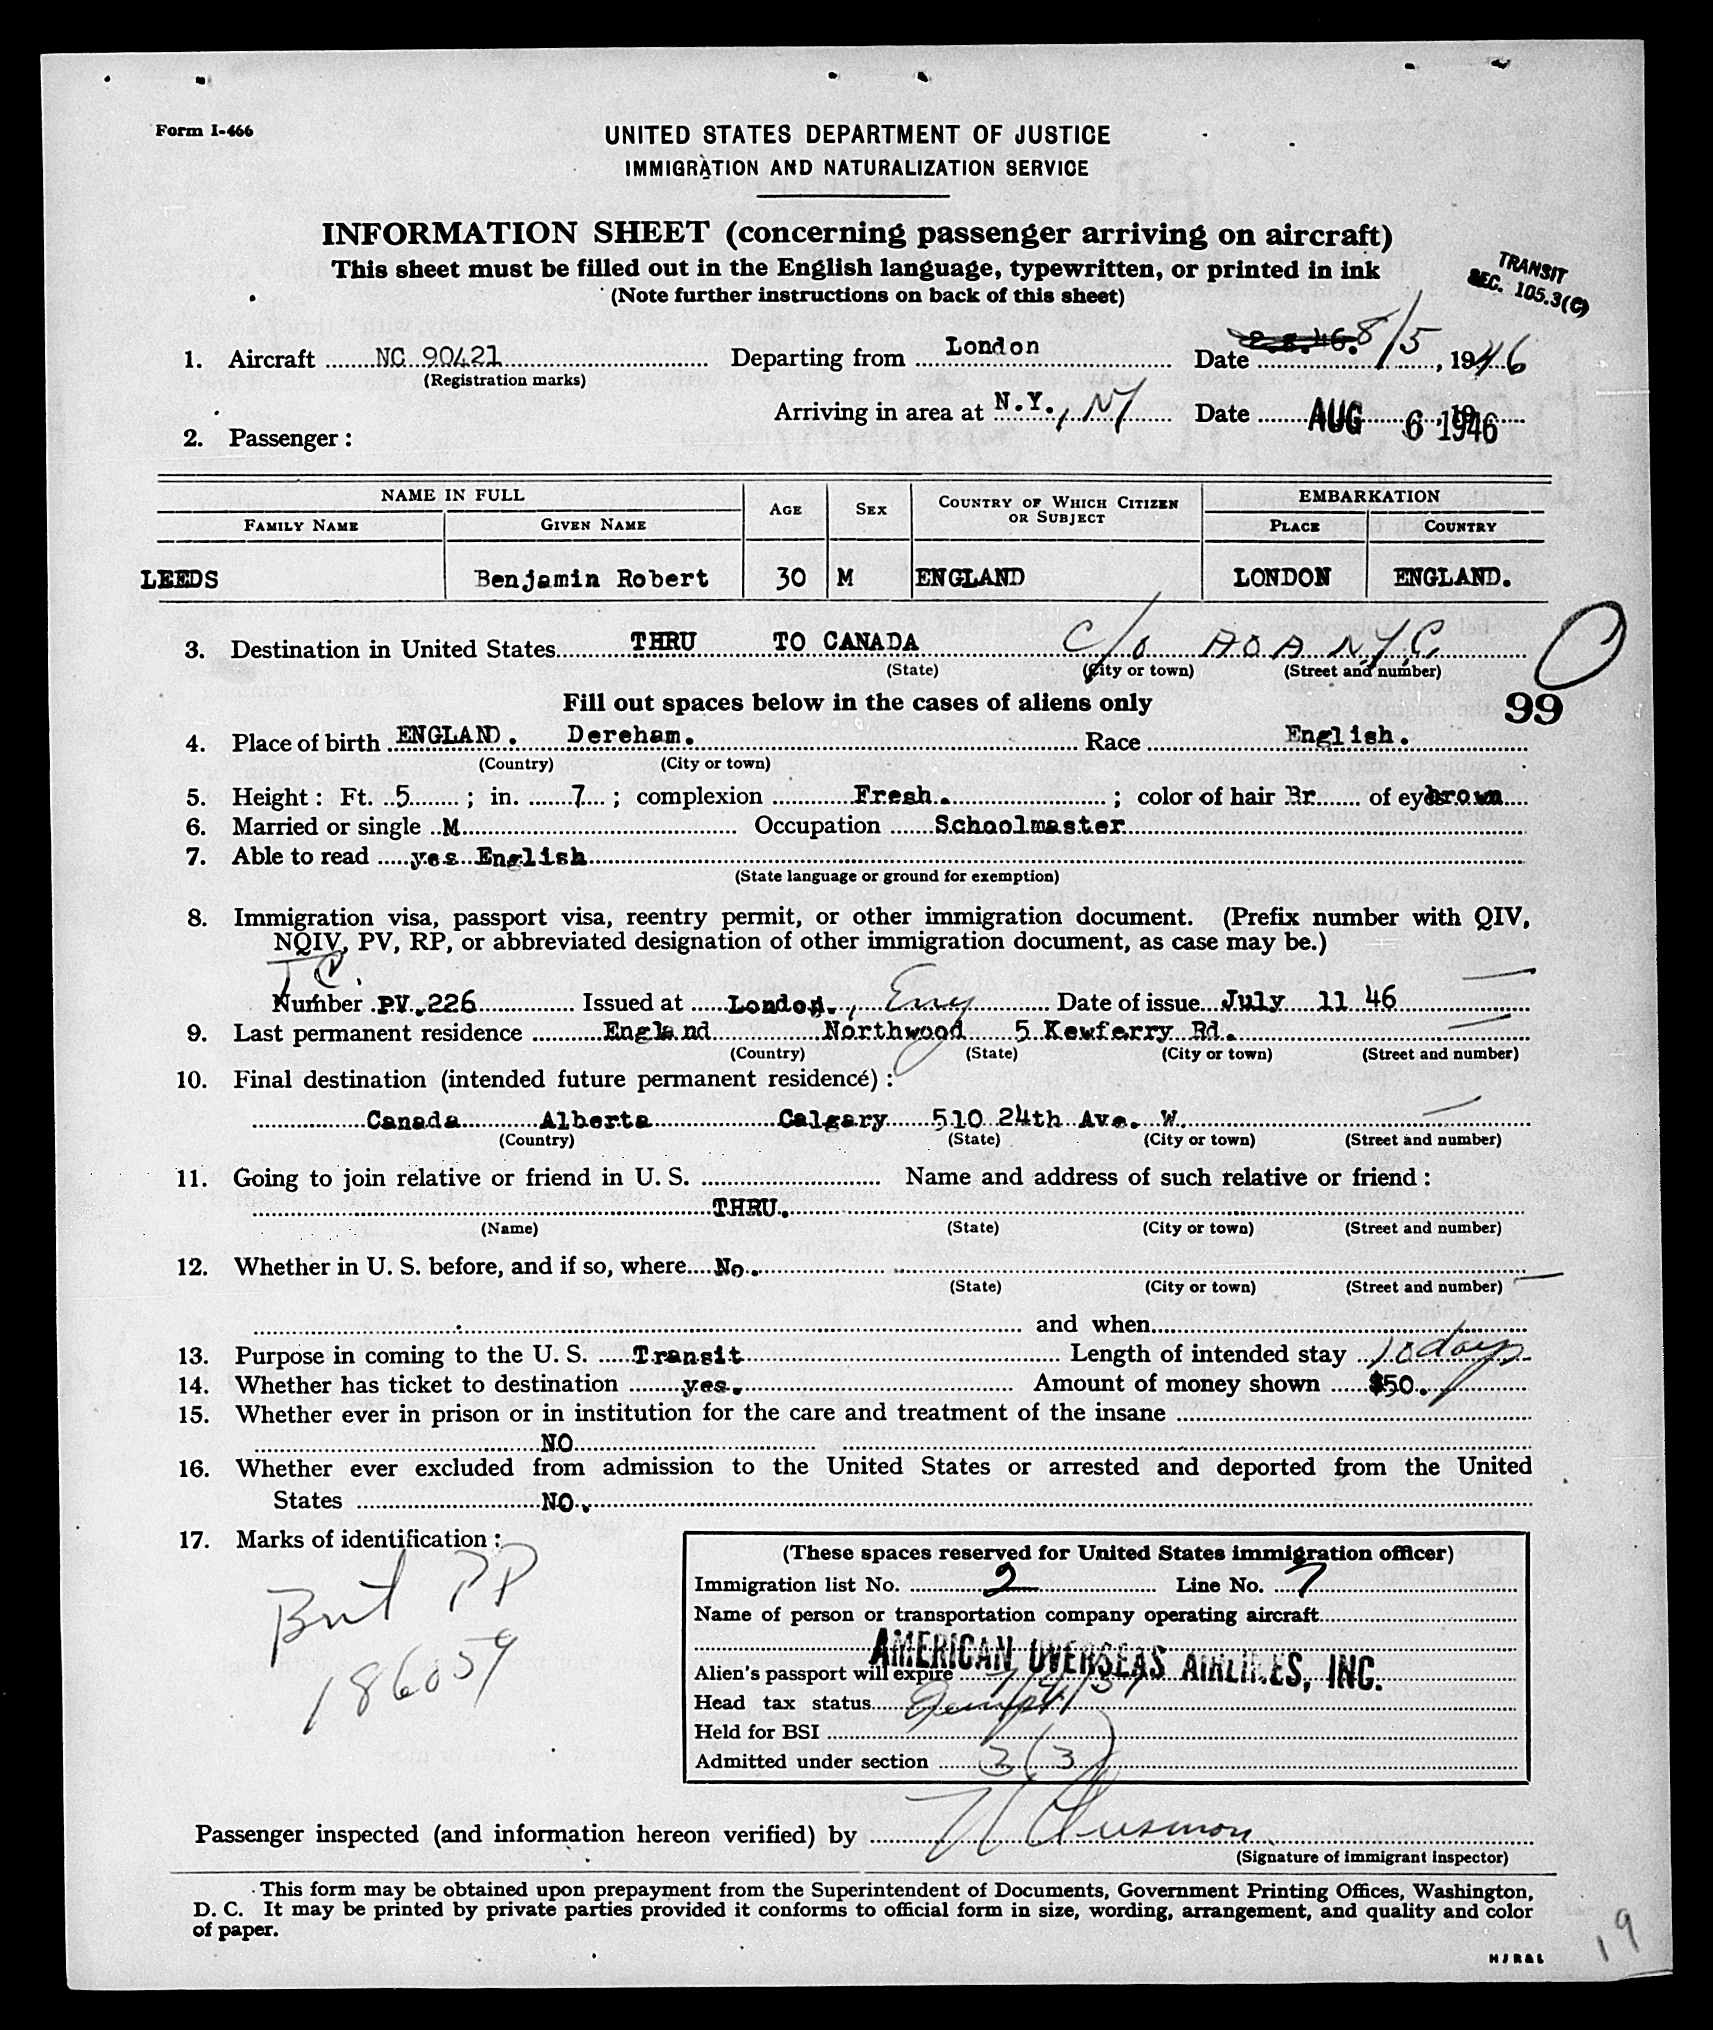 Form I-466
UNITED STATES DEPARTMENT OF JUSTICE
IMMIGRATION AND NATURALIZATION SERVICE
INFORMATION SHEET (concerning passenger arriving on aircraft)
This sheet must be filled out in the English language, typewritten, or printed in ink
(Note further instructions on back of this sheet)
TRANSIT
SEC. 105.3(C)
1. Aircraft NC 90421 Departing from London Date 8/5, 1946
(Registration marks)
Arriving in area at N.Y., NY Date AUG 6 1946
2. Passenger:
NAME IN FULL AGE SEX COUNTRY OF WHICH CITIZEN OR SUBJECT EMBARKATION
FAMILY NAME GIVEN NAME PLACE COUNTRY
LEEDS Benjamin Robert 30 M ENGLAND LONDON ENGLAND.
3. Destination in United States THRU TO CANADA C/O AOA NYC
(State) (City or town) (Street and number)
99
Fill out spaces below in the cases of aliens only
4. Place of birth ENGLAND. Dereham. Race English.
(Country) (City or town)
5. Height: Ft. 5 ; in. 7 ; complexion Fresh. ; color of hair Br of eyes brown
6. Married or single M Occupation Schoolmaster
7. Able to read yes English
(State language or ground for exemption)
8. Immigration visa, passport visa, reentry permit, or other immigration document. (Prefix number with QIV,
NQIV, PV, RP, or abbreviated designation of other immigration document, as case may be.)
Number PV.226 Issued at London., Eng Date of issue July 11 46
9. Last permanent residence England Northwood 5 Kewferry Rd.
(Country) (State) (City or town) (Street and number)
10. Final destination (intended future permanent residence):
Canada Alberta Calgary 510 24th Ave. W.
(Country) (State) (City or town) (Street and number)
11. Going to join relative or friend in U. S. Name and address of such relative or friend:
THRU.
(Name) (State) (City or town) (Street and number)
12. Whether in U. S. before, and if so, where No.
(State) (City or town) (Street and number)
and when
13. Purpose in coming to the U. S. Transit Length of intended stay 10 days
14. Whether has ticket to destination yes. Amount of money shown $50.
15. Whether ever in prison or in institution for the care and treatment of the insane
NO
16. Whether ever excluded from admission to the United States or arrested and deported from the United
States NO.
17. Marks of identification:
Brit PP
186059
(These spaces reserved for United States immigration officer)
Immigration list No. 2 Line No. 7
Name of person or transportation company operating aircraft
AMERICAN OVERSEAS AIRLINES, INC.
Alien's passport will expire
Head tax status
Held for BSI
Admitted under section 3(3)
Passenger inspected (and information hereon verified) by
(Signature of immigrant inspector)
This form may be obtained upon prepayment from the Superintendent of Documents, Government Printing Offices, Washington,
D. C. It may be printed by private parties provided it conforms to official form in size, wording, arrangement, and quality and color
of paper.
19